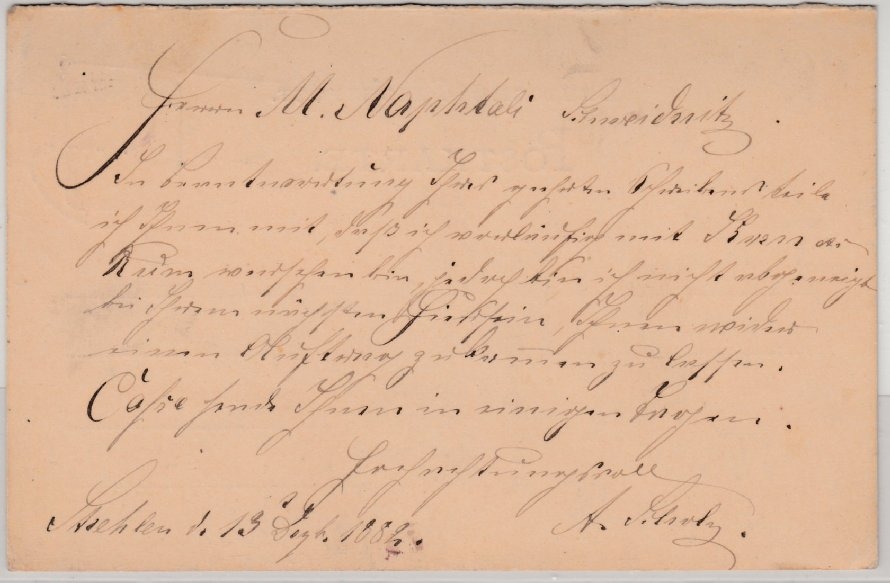 Herrn M. Naphtali Schweidnitz.
In Beantwortung Ihres geehrten Schreibens teile
ich Ihnen mit, daß ich vorläufig mit
Rum versehen bin, jedoch bin ich nicht abgeneigt
bei Ihrem nächsten Hiersein, Ihnen wieder
einen Auftrag zukommen zu lassen.
Casse sende Ihnen in einigen Tagen.
Hochachtungsvoll
Strehlen d. 13 Dezb. 1882. A. Scholz.